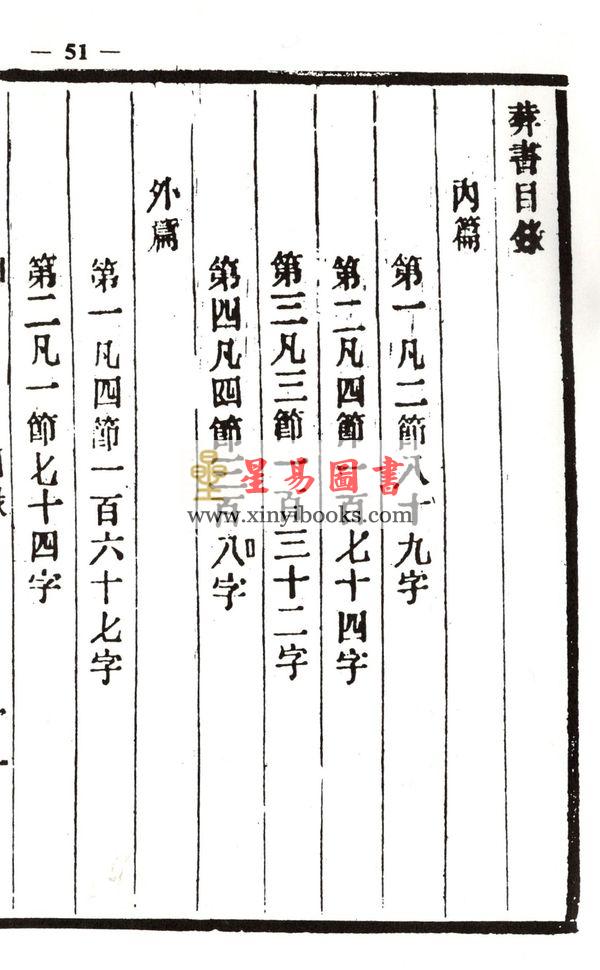 — 51 —
葬書目錄
內篇
第一凡二節八十九字
第二凡四節一百七十四字
第三凡三節一百三十二字
第四凡四節三百八字
外篇
第一凡四節一百六十七字
第二凡一節七十四字
星易圖書
www.xinyibooks.com